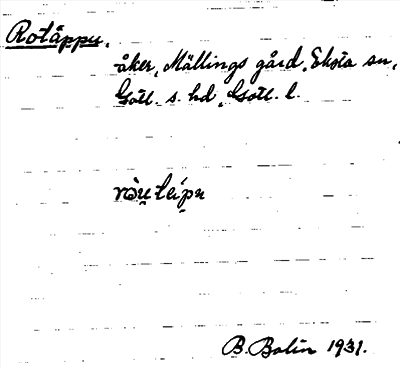 Rotäppu.
åker, Mällings gård, Eksta sn,
Gotl. s. hd, Gotl. l.
B. Bolin 1931.